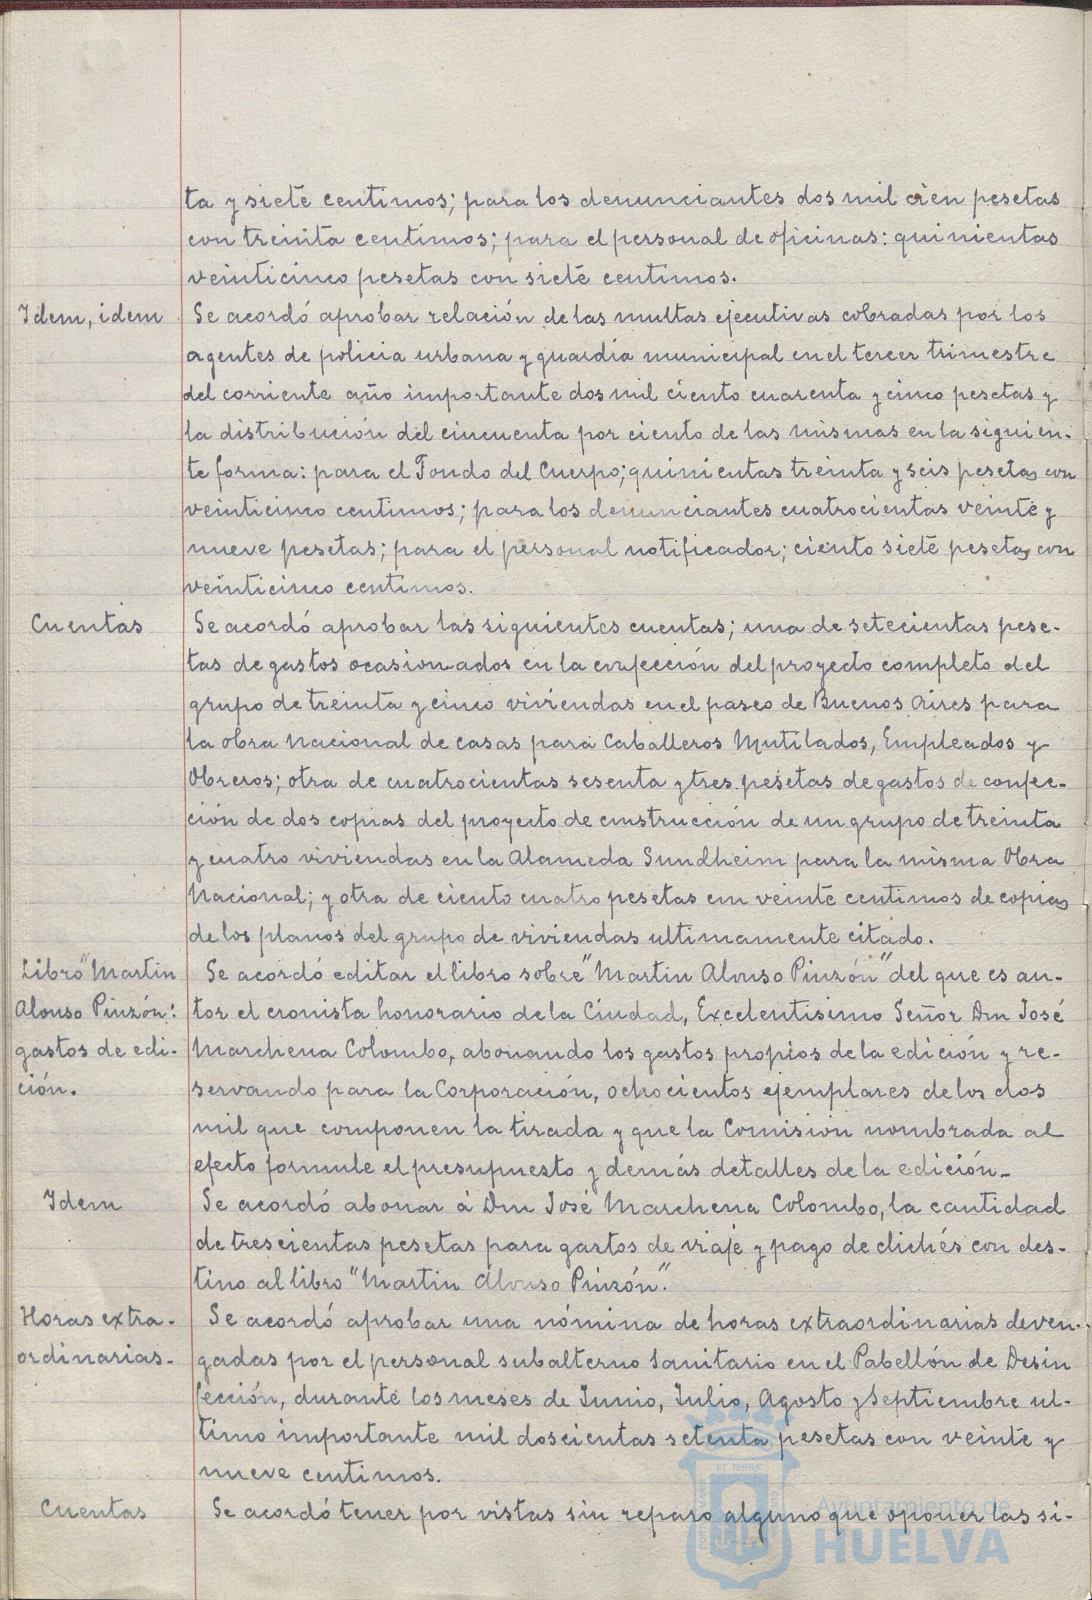 ta y siete centimos; para los denunciantes dos mil cien pesetas
con treinta centimos; para el personal de oficinas: quinientas
veinticinco pesetas con siete centimos.
Idem, idem
Se acordó aprobar relación de las multas ejecutivas cobradas por los
agentes de policia urbana y guardia municipal en el tercer trimestre
del corriente año importante dos mil ciento cuarenta y cinco pesetas y
la distribución del cincuenta por ciento de las mismas en la siguien-
te forma: para el Fondo del Cuerpo; quinientas treinta y seis pesetas con
veinticinco centimos; para los denunciantes cuatrocientas veinte y
nueve pesetas; para el personal notificador; ciento siete pesetas con
veinticinco centimos.
Cuentas
Se acordó aprobar las siguientes cuentas; una de setecientas pese-
tas de gastos ocasionados en la confección del proyecto completo del
grupo de treinta y cinco viviendas en el paseo de Buenos Aires para
la obra nacional de casas para Caballeros Mutilados, Empleados y
Obreros; otra de cuatrocientas sesenta y tres pesetas de gastos de confec-
ción de dos copias del proyecto de construcción de un grupo de treinta
y cuatro viviendas en la Alameda Sundheim para la misma Obra
Nacional; y otra de ciento cuatro pesetas con veinte centimos de copias
de los planos del grupo de viviendas ultimamente citado.
Libro "Martin
Alonso Pinzón":
gastos de edi-
ción.
Se acordó editar el libro sobre "Martin Alonso Pinzón" del que es au-
tor el cronista honorario de la Ciudad, Excelentisimo Señor Don José
Marchena Colombo, abonando los gastos propios de la edición y re-
servando para la Corporación, ochocientos ejemplares de los dos
mil que componen la tirada y que la Comisión nombrada al
efecto formule el presupuesto y demás detalles de la edición.
Idem
Se acordó abonar á Don José Marchena Colombo, la cantidad
de trescientas pesetas para gastos de viaje y pago de clichés con des-
tino al libro "Martin Alonso Pinzón".
Horas extra-
ordinarias.
Se acordó aprobar una nómina de horas extraordinarias deven-
gadas por el personal subalterno Sanitario en el Pabellón de Desin
fección, durante los meses de Junio, Julio, Agosto y Septiembre ul-
timo importante mil doscientas setenta pesetas con veinte y
nueve centimos.
Cuentas
Se acordó tener por vistas sin reparo alguno que oponer las si-
Ayuntamiento de
HUELVA